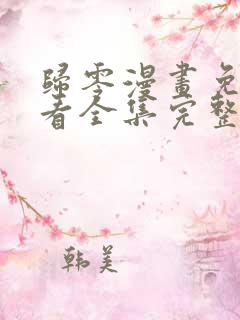 歸零漫畫免
看全集完整
韩美